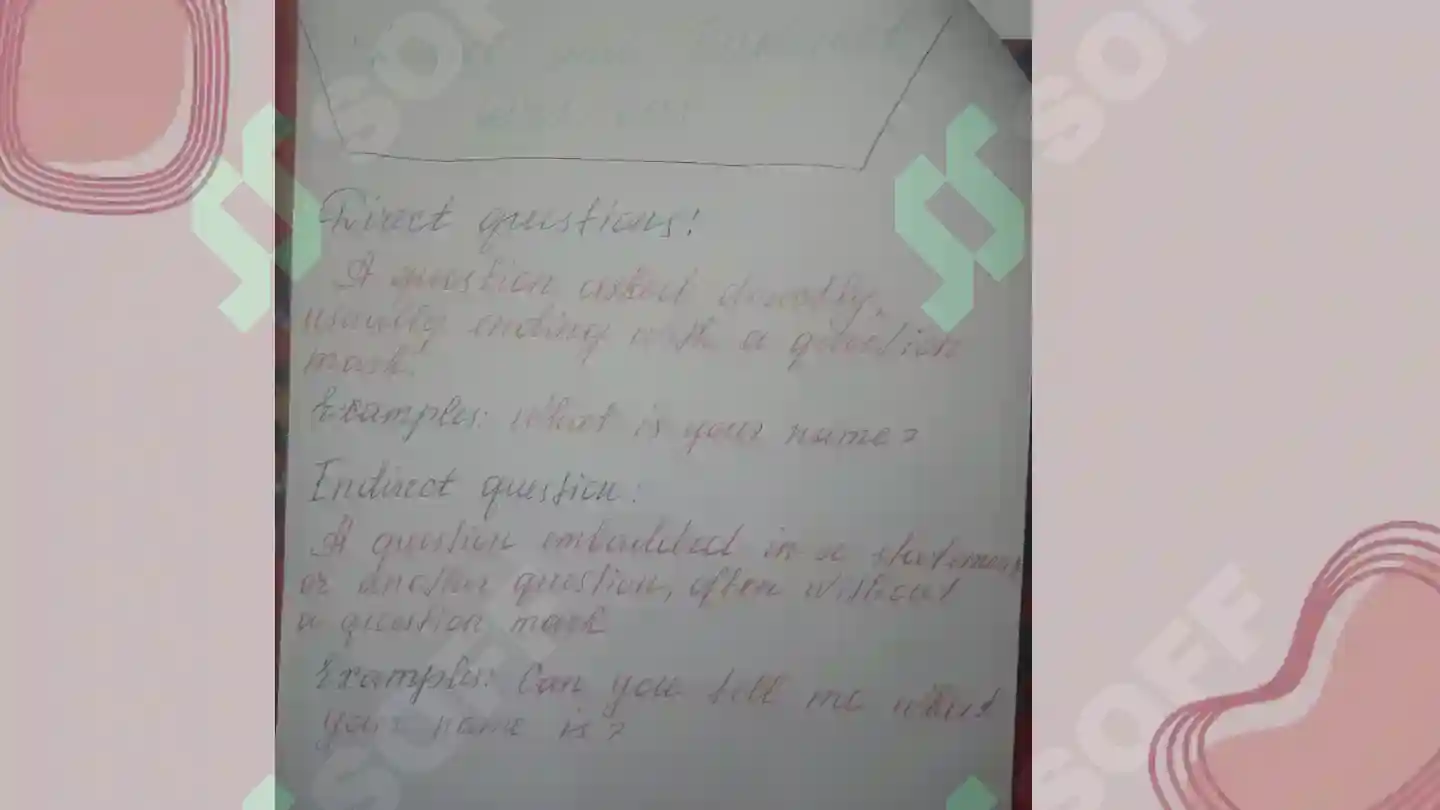 SOFF
SOFF
Direct and Indirect
questions
Direct questions:
A question asked directly,
usually ending with a question
mark.
Examples: What is your name?
Indirect question:
A question embedded in a statement
or another question, often without
a question mark
Examples: Can you tell me what
your name is?
SOFF
SOFF